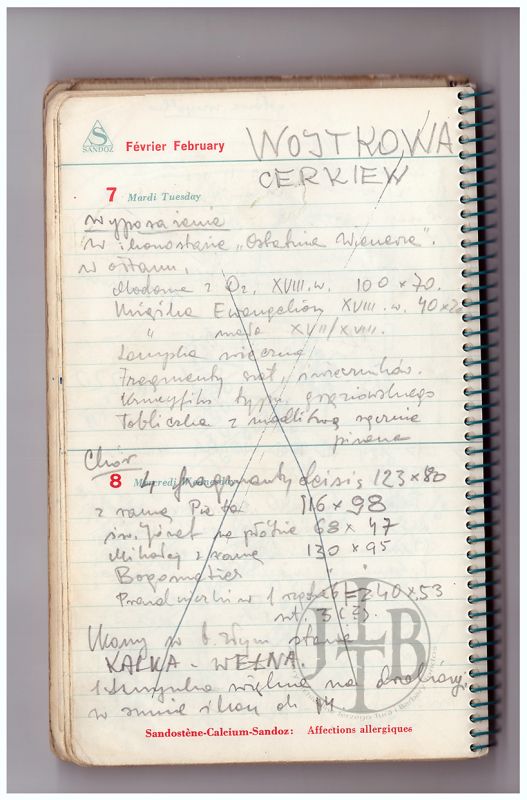 SANDOZ
Février February
WOJTKOWA
CERKIEW
7 Mardi Tuesday
wyposażenie
w ikonostasie „Ostatnia Wieczerza".
w ołtarzu,
Madonna z Dz. XVIII.w. 100 x 70.
Książka Ewangelion XVIII.w. 40x
" mała XVII/XVIII.
Lampka wieczna
Fragmenty szat, świeczników.
Krucyfiks typu
Tobliczka z modlitwą ręcznie
pisana
Chór
8 Mercredi Wednesday
4 fragmenty deisis 123 x 80
z ramą Pieta 116 x 98
św. Józef na płótnie 68 x 47
Mikołaj z ramą 130 x 95
Bogomateri
1 = 240 x 53
szt. 3 (?)
Ikony w b. złym stanie
KALKA - WEŁNA.
1 skrzynka większa na
w sumie ikon ok 14
JLTB
Sandostène-Calcium-Sandoz: Affections allergiques